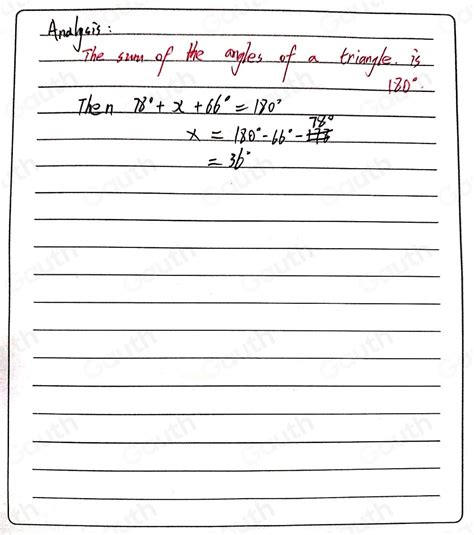 Analysis:
The sum of the angles of a triangle. is
180°.
Then 78° + x + 66° = 180°
78°
x = 180° - 66° -
= 36°
Gauth